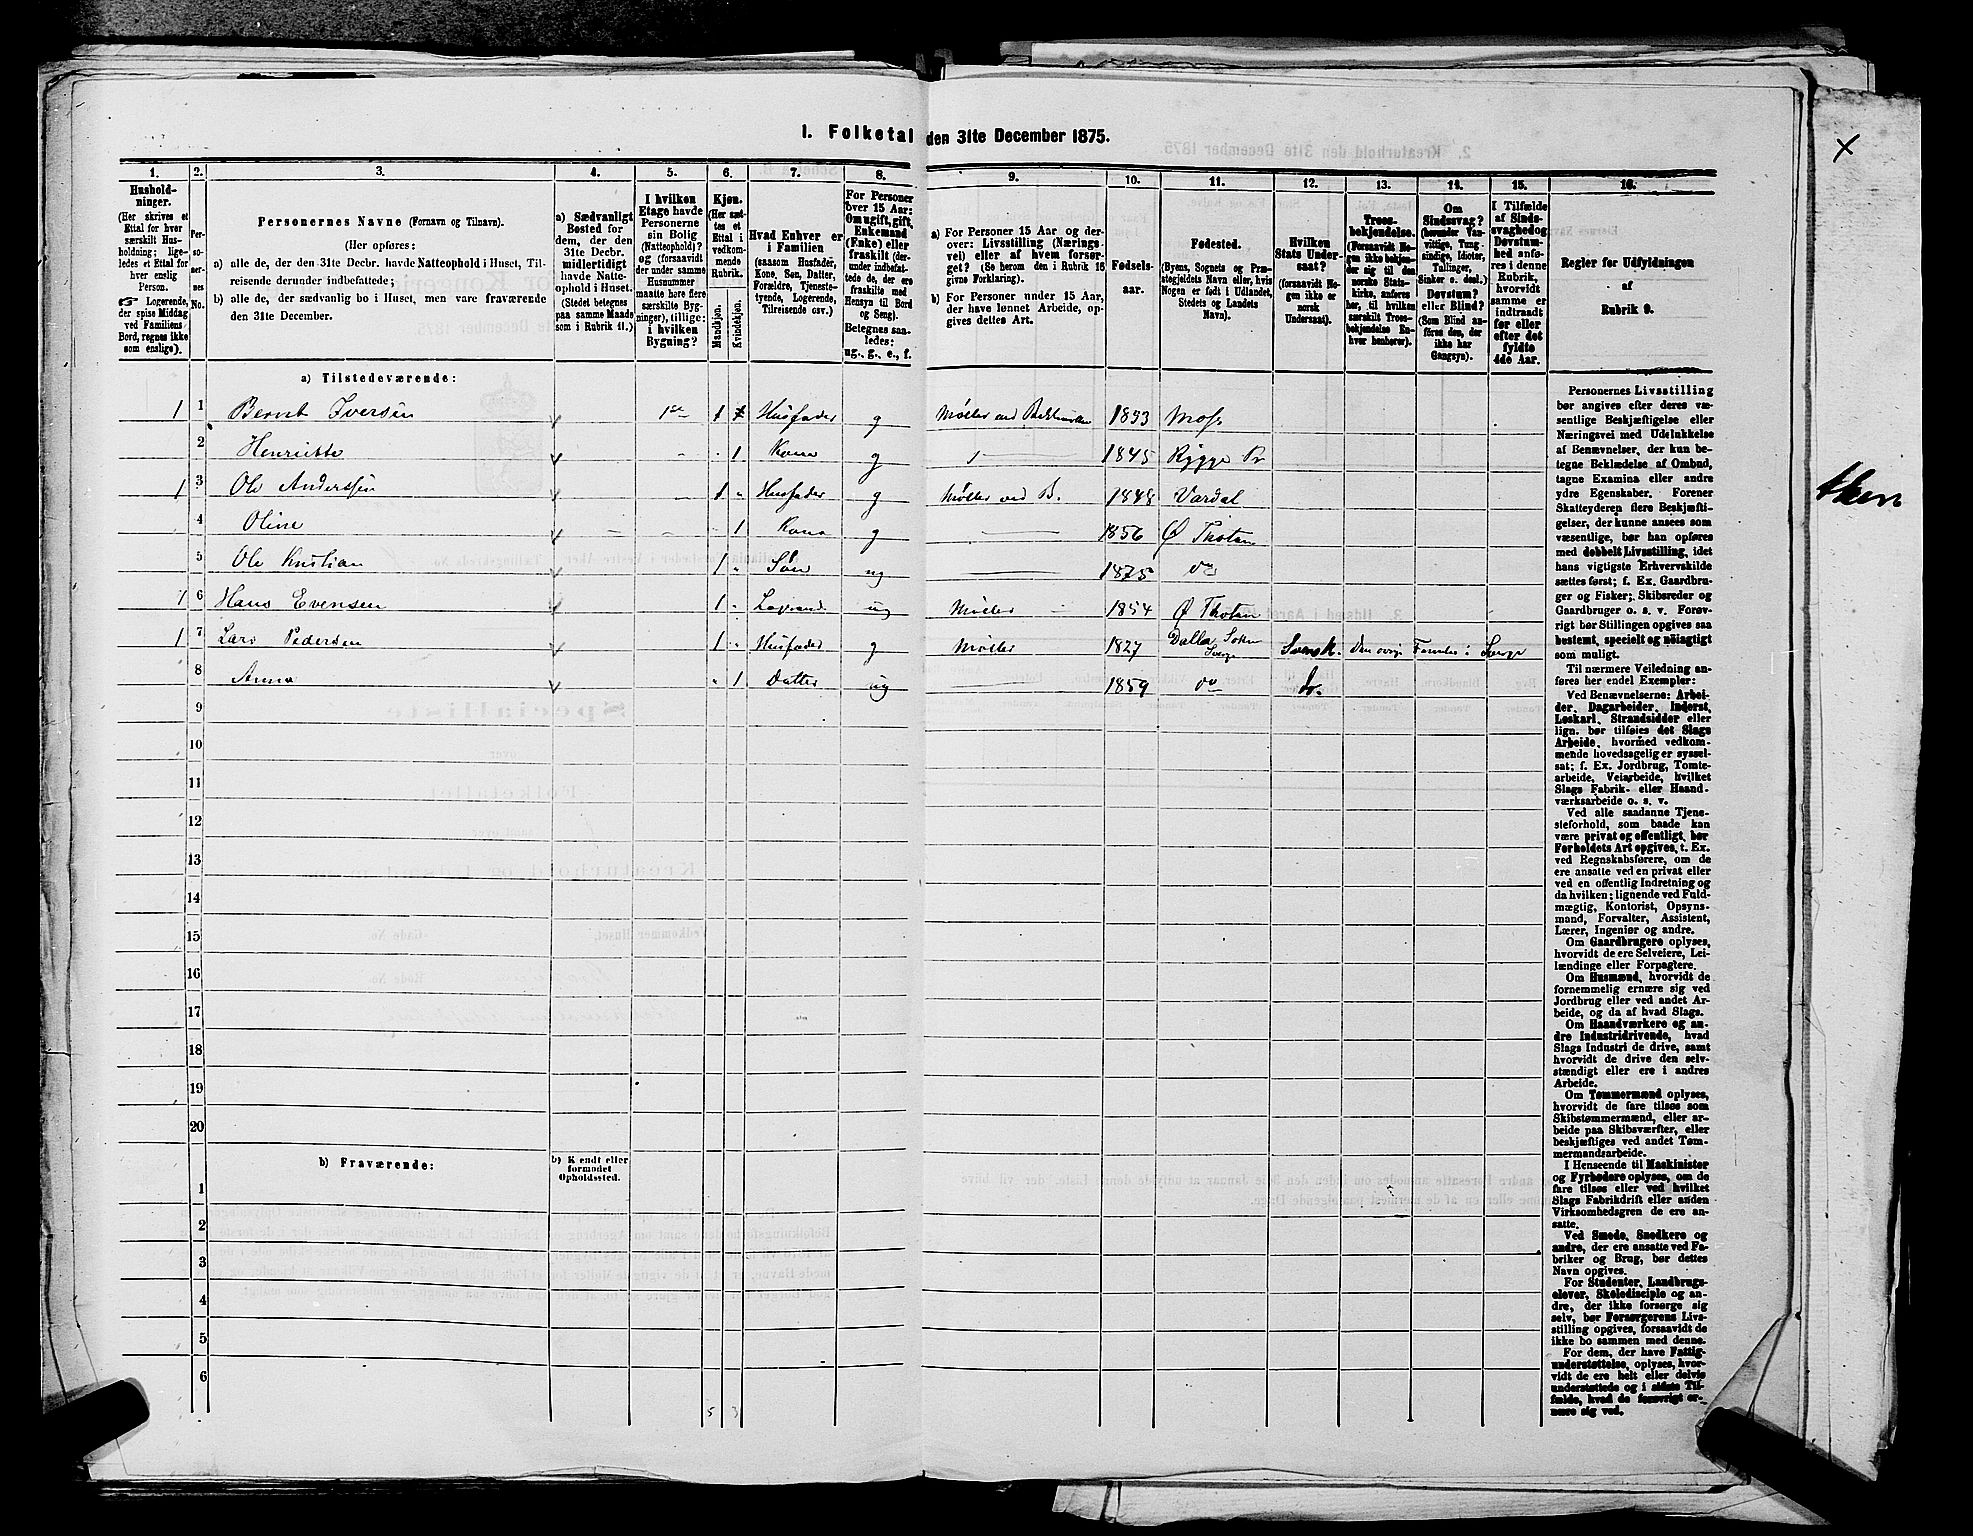 1. Folketal den 31te December 1875.
1. 2. 3. 4. 5. 6. 7. 8. 9. 10. 11. 12. 13. 14. 15. 16.
Hushold-
ninger.
(Her skrives et
Ettal for hver
særskilt Hus-
holdning; lige-
ledes et Ettal for
hver enslig
Person.
☞ Logerende,
der spise Middag
ved Familiens
Bord, regnes ikke
som enslige).
Per-
so-
ner-
nes
No.
Personernes Navne (Fornavn og Tilnavn).
(Her opføres:
a) alle de, der den 31te Decbr. havde Natteophold i Huset, Til-
reisende derunder indbefattede;
b) alle de, der sædvanlig bo i Huset, men vare fraværende
den 31te December.
a) Sædvanligt
Bosted for
dem, der den
31te Decbr.
midlertidigt
havde Natte-
ophold i Huset.
(Stedet betegnes
paa samme Maade
som i Rubrik 11.)
I hvilken
Etage havde
Personerne
sin Bolig
(Natteophold)?
og (forsaavidt
der under samme
Husnummer
maatte høre flere
særskilte Byg-
ninger), tillige:
i hvilken
Bygning?
Kjøn.
(Her sæt-
tes et
Ettal i
vedkom-
mende
Rubrik.
Mandkjøn.
Kvindekjøn.
Hvad Enhver er
i Familien
(saasom Husfader,
Kone, Søn, Datter,
Forældre, Tjeneste-
tyende, Logerende,
Tilreisende osv.)
For Personer
over 15 Aar:
Om ugift, gift,
Enkemand
(Enke) eller
fraskilt (der-
under indbefat-
tede de, der ere
fraskilte med
Hensyn til Bord
og Seng).
Betegnes saa-
ledes:
ug., g., e., f.
a) For Personer 15 Aar og der-
over: Livsstilling (Nærings-
vei) eller af hvem forsør-
get? (Se herom den i Rubrik 16
givne Forklaring).
b) For Personer under 15 Aar,
der have lønnet Arbeide, op-
gives dettes Art.
Fødsels-
aar.
Fødested.
(Byens, Sognets og Præ-
stegjeldets Navn eller, hvis
Nogen er født i Udlandet,
Stedets og Landets
Navn).
Hvilken
Stats Under-
saat?
(forsaavidt No-
gen ikke er
norsk
Undersaat).
Troes-
bekjendelse.
(Forsaavidt No-
gen ikke bekjen-
der sig til den
norske Stats-
kirke, anføres
her, til hvilken
særskilt Troes-
bekjendelse En-
hver henhører).
Om
Sindssvag?
(herunder Van-
vittige, Tung-
sindige, Idioter,
Tullinger,
Sinker o. desl.)
Døvstum?
eller Blind?
(Som Blind an-
føres den, der
ikke har
Gangsyn).
I Tilfælde
af Sinds-
svaghed og
Døvstum-
hed anfø-
res i denne
Rubrik,
hvorvidt
samme er
indtraadt
før eller
efter det
fyldte
4de Aar.
Regler for Udfyldningen
af
Rubrik 9.
a) Tilstedeværende:
1 1 Bernt Iversen 1ste 1 Husfader g Møller ved 1833 Moss
2 Henriette 1 Kone g 1845 Rygge Pr
1 3 Ole Anderssen 1 Husfader g Møller ved B. 1848 Vardal
4 Oline 1 Kone g 1856 Ø Thoten
5 Ole Kristian 1 Søn ug 1875 do
1 6 Hans Evensen 1 Logerende ug Møller 1854 Ø Thoten
1 7 Lars Pedersen 1 Husfader g Møller 1827 Dalla Sokn Sverge Svensk. Den øvr. Familie i Sverge
8 Anna 1 Datter ug 1859 do do.
9
10
11
12
13
14
15
16
17
18
19
20
b) Fraværende:
b) Kjendt eller
formodet
Opholdssted.
1
2
3
4
5
6
5 3
Personernes Livsstilling
bør angives efter deres væ-
sentlige Beskjæftigelse eller
Næringsvei med Udelukkelse
af Benævnelser, der kun be-
tegne Beklædelse af Ombud,
tagne Examina eller andre
ydre Egenskaber. Forener
Skatteyderen flere Beskjæfti-
gelser, der kunne ansees som
væsentlige, bør han opføres
med dobbelt Livsstilling, idet
hans vigtigste Erhvervskilde
sættes først; f. Ex. Gaardbru-
ger og Fisker; Skibsreder og
Gaardbruger o. s. v. Forøv-
rigt bør Stillingen opgives saa
bestemt, specielt og nøiagtigt
som muligt.
Til nærmere Veiledning an-
føres her endel Exempler:
Ved Benævnelserne: Arbei-
der, Dagarbeider, Inderst,
Løskarl, Strandsidder eller
lign. bør tilføies det Slags
Arbeide, hvormed vedkom-
mende hovedsagelig er syssel-
sat; f. Ex. Jordbrug, Tomte-
arbeide, Veiarbeide, hvilket
Slags Fabrik- eller Haand-
værksarbeide o. s. v.
Ved alle saadanne Tjene-
steforhold, som baade kan
være privat og offentligt, bør
Forholdets Art opgives, t. Ex.
ved Regnskabsførere, om de
ere ansatte ved en privat eller
ved en offentlig Indretning og
da hvilken; lignende ved Fuld-
mægtig, Kontorist, Opsyns-
mand, Forvalter, Assistent,
Lærer, Ingeniør og andre.
Om Gaardbrugere oplyses,
hvorvidt de ere Selveiere, Lei-
lændinge eller Forpagtere.
Om Husmænd, hvorvidt de
fornemmelig ernære sig ved
Jordbrug eller ved andet Ar-
beide, og da af hvad Slags.
Om Haandværkere og an-
dre Industridrivende, hvad
Slags Industri de drive, samt
hvorvidt de drive den selv-
stændigt eller ere i andres
Arbeide.
Om Tømmermænd oplyses,
hvorvidt de fare tilsøs som
Skibstømmermænd, eller ar-
beide paa Skibsværfter, eller
beskjæftiges ved andet Tøm-
mermandsarbeide.
I Henseende til Maskinister
og Fyrbødere oplyses, om de
fare tilsøs eller ved hvilket
Slags Fabrikdrift eller anden
Virksomhedsgren de ere an-
satte.
Ved Smede, Snedkere og
andre, der ere ansatte ved Fa-
briker og Brug, bør dettes
Navn opgives.
For Studenter, Landbrugs-
elever, Skoledisciple og an-
dre, der ikke forsørge sig
selv, bør Forsørgerens Livs-
stilling opgives, forsaavidt de
ikke bo sammen med denne.
For dem, der have Fattig-
understøttelse, oplyses, hvor-
vidt de ere helt eller delvis
understøttede og i sidste Til-
fælde, hvad de forøvrigt er-
nære sig ved.